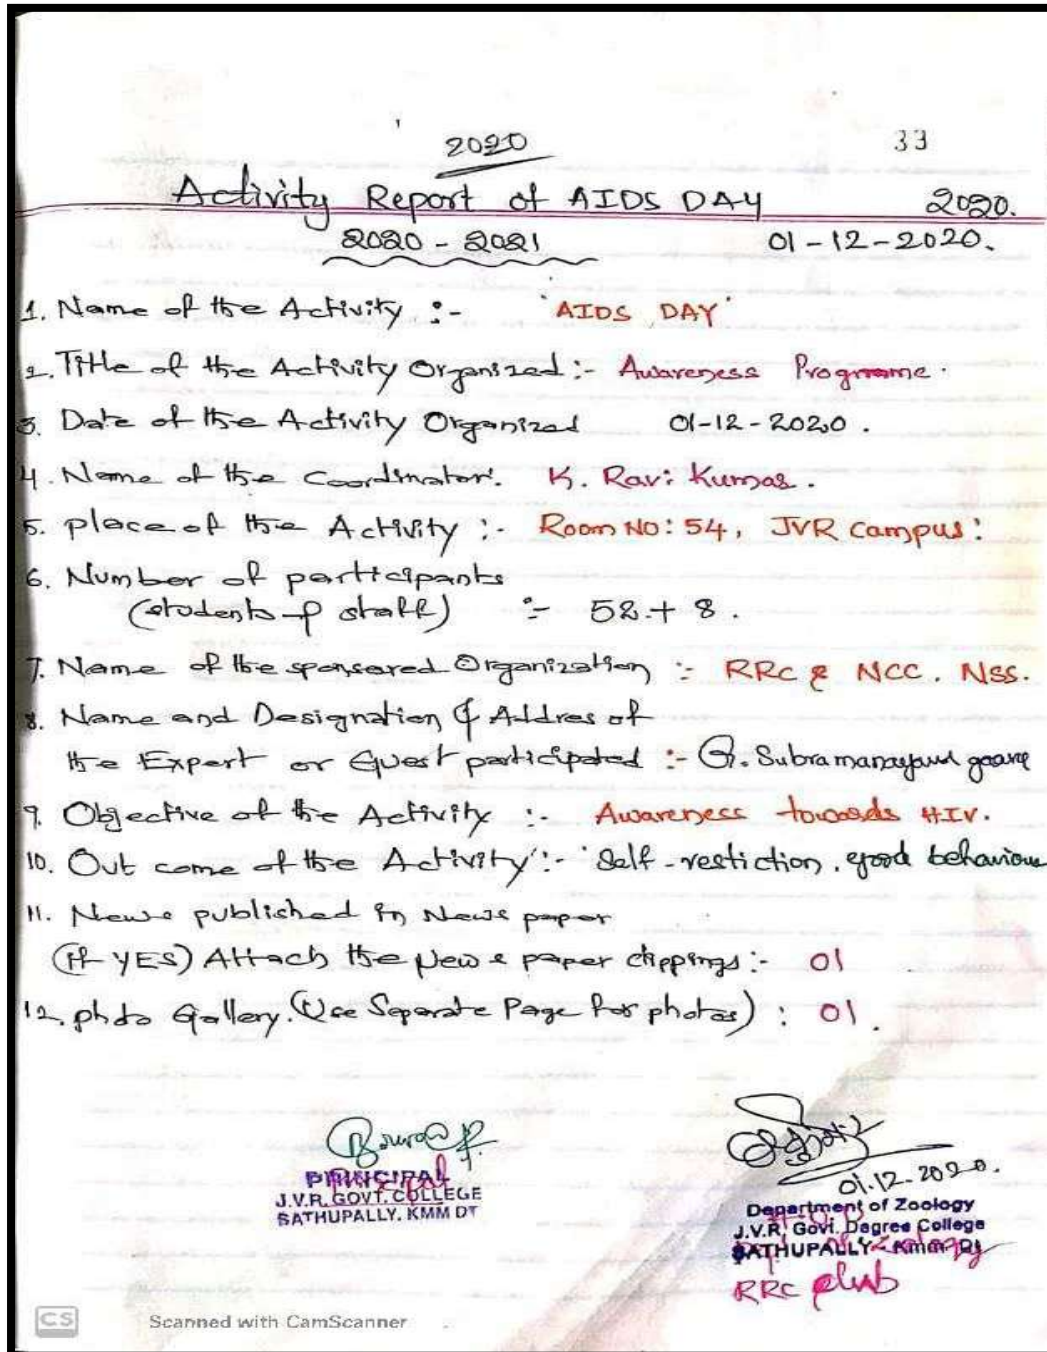 2020
33
Activity Report of AIDS DAY 2020.
2020 - 2021 01-12-2020.
1. Name of the Activity :- 'AIDS DAY'
2. Title of the Activity Organized :- Awareness Programme.
3. Date of the Activity Organized 01-12-2020.
4. Name of the Coordinator: K. Ravi Kumar.
5. place of the Activity :- Room No: 54, JVR campus:
6. Number of participants
(students & staff) :- 52 + 8.
7. Name of the sponsared Organization :- RRC & NCC. NSS.
8. Name and Designation & Addres of
the Expert or Guest participated :- G. Subramanayam gaaru
9. Objective of the Activity :- Awareness towards HIV.
10. Out come of the Activity :- Self-restiction, good behaviour
11. News published in News paper
(If YES) Attach the News paper clippings :- 01
12. photo Gallery. (Use Separate Page for photos) : 01.
PRINCIPAL
J.V.R. GOVT. COLLEGE
SATHUPALLY. KMM DT
01.12.2020.
Department of Zoology
J.V.R. Govt. Degree College
SATHUPALLY - Kmm. Dt
RRC club
CS Scanned with CamScanner